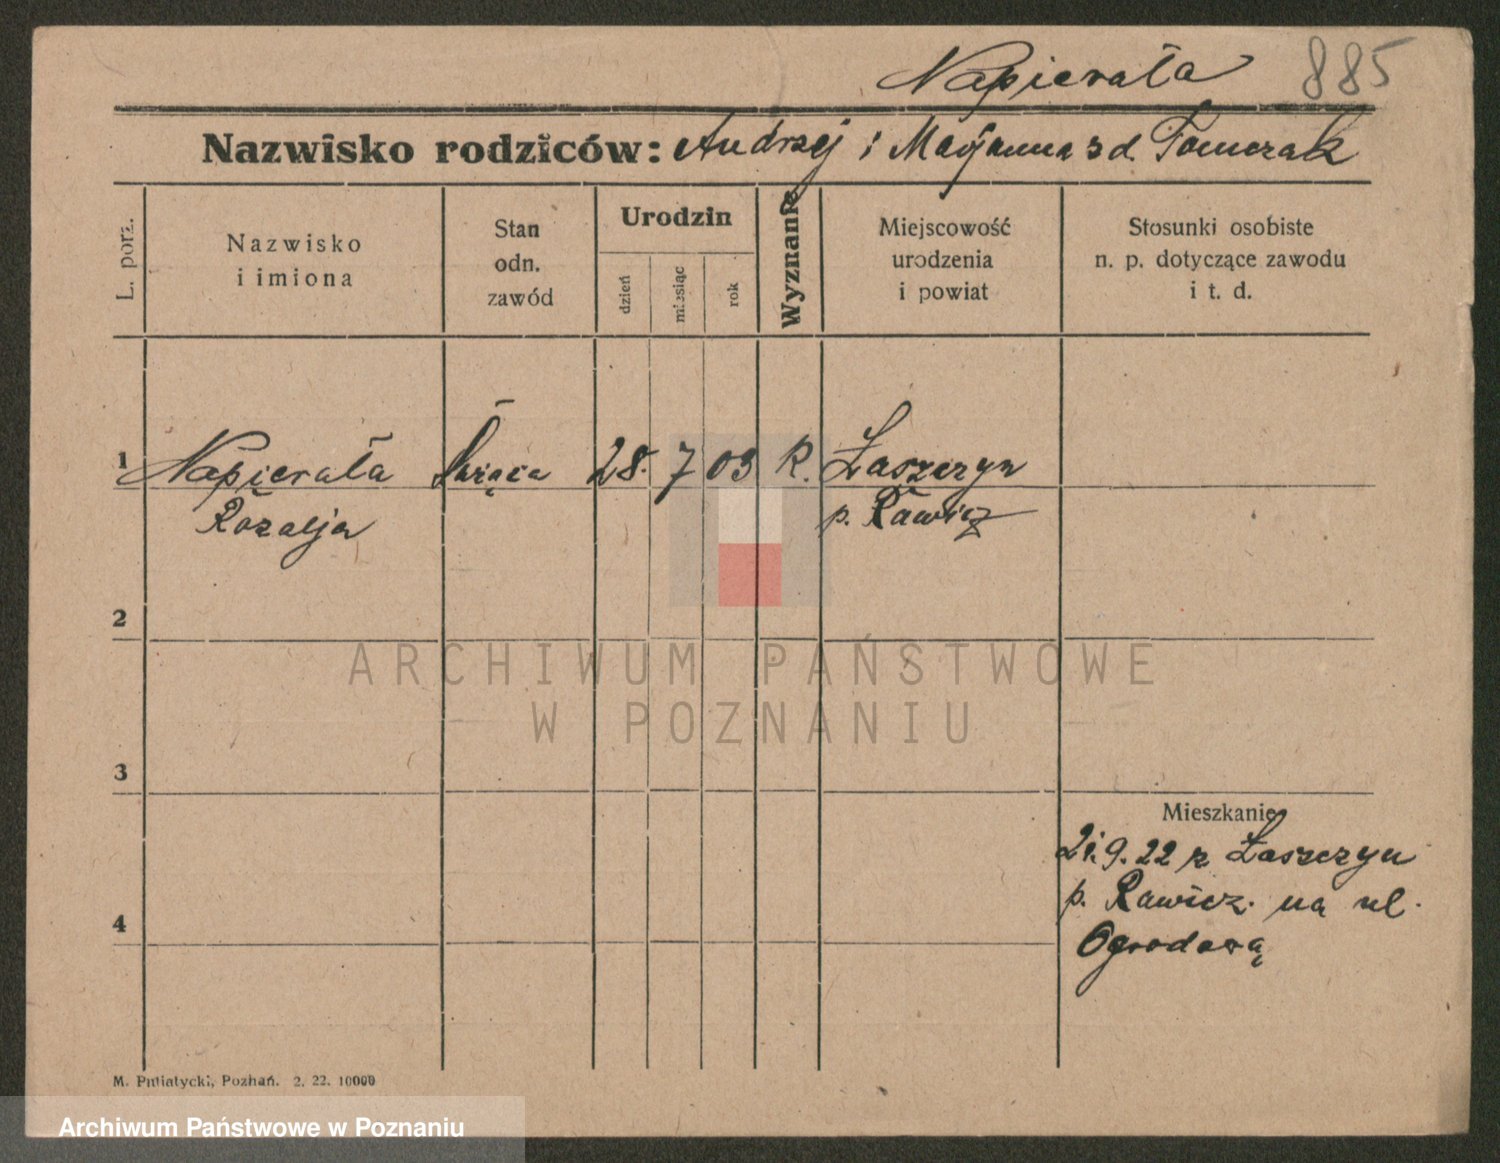 Napierała 885
Nazwisko rodziców: Andrzej i Maryanna zd. Tomczak
L. porz.
Nazwisko
i imiona
Stan
odn.
zawód
Urodzin
dzień
miesiąc
rok
Wyznanie
Miejscowość
urodzenia
i powiat
Stosunki osobiste
n. p. dotyczące zawodu
i t. d.
1 Napierała Służąca 28. 7 03 R. Łaszczyn
Rozalja p. Rawicz
2
ARCHIWUM PAŃSTWOWE
W POZNANIU
3
Mieszkanie
21.9.22 z Łaszczyn
p. Rawicz. na ul.
4
Ogrodową
M. Putiatycki, Poznań. 2. 22. 10000
Archiwum Państwowe w Poznaniu